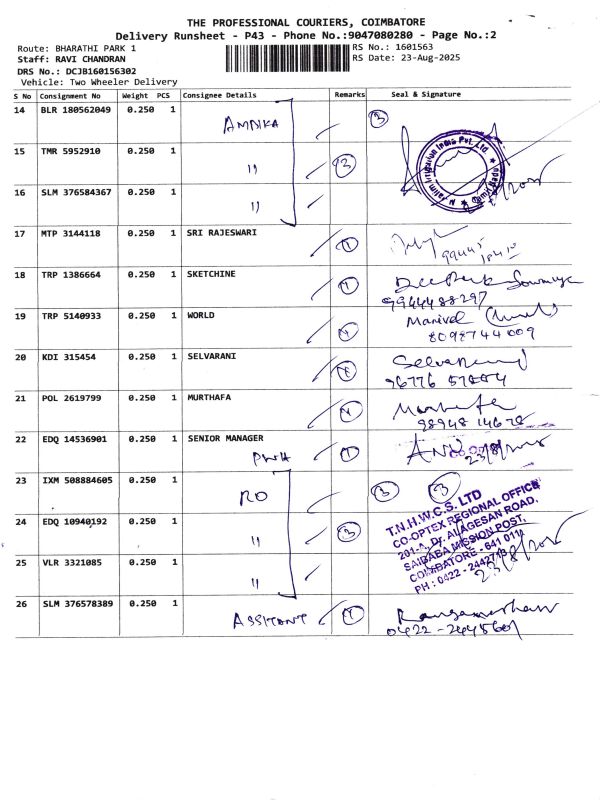 THE PROFESSIONAL COURIERS, COIMBATORE
Delivery Runsheet - P43 - Phone No.:9047080280 - Page No.:2
Route: BHARATHI PARK 1 RS No.: 1601563
Staff: RAVI CHANDRAN RS Date: 23-Aug-2025
DRS No.: DCJB160156302
Vehicle: Two Wheeler Delivery
S No Consignment No Weight PCS Consignee Details Remarks Seal & Signature
14 BLR 180562049 0.250 1 3
15 TMR 5952910 0.250 1 " 3
16 SLM 376584367 0.250 1 "
Irrigation India Pvt. Ltd
17 MTP 3144118 0.250 1 SRI RAJESWARI 1
18 TRP 1386664 0.250 1 SKETCHINE 1 Deepak Sowmya
9944488297
19 TRP 5140933 0.250 1 WORLD Manivel
8098744009
20 KDI 315454 0.250 1 SELVARANI Selvarani
21 POL 2619799 0.250 1 MURTHAFA
98948 14678
22 EDQ 14536901 0.250 1 SENIOR MANAGER 1
23/8/2025
23 IXM 508884605 0.250 1 RO 3 3
24 EDQ 10940192 0.250 1 " 3
25 VLR 3321085 0.250 1 "
T.N.H.W.C.S. LTD
CO-OPTEX REGIONAL OFFICE
201-A, Dr. ALAGESAN ROAD,
SAIBABA MISSION POST,
COIMBATORE - 641 011
PH : 0422 - 244271
23/8/2025
26 SLM 376578389 0.250 1 ASSITANT 1
0422-2445601